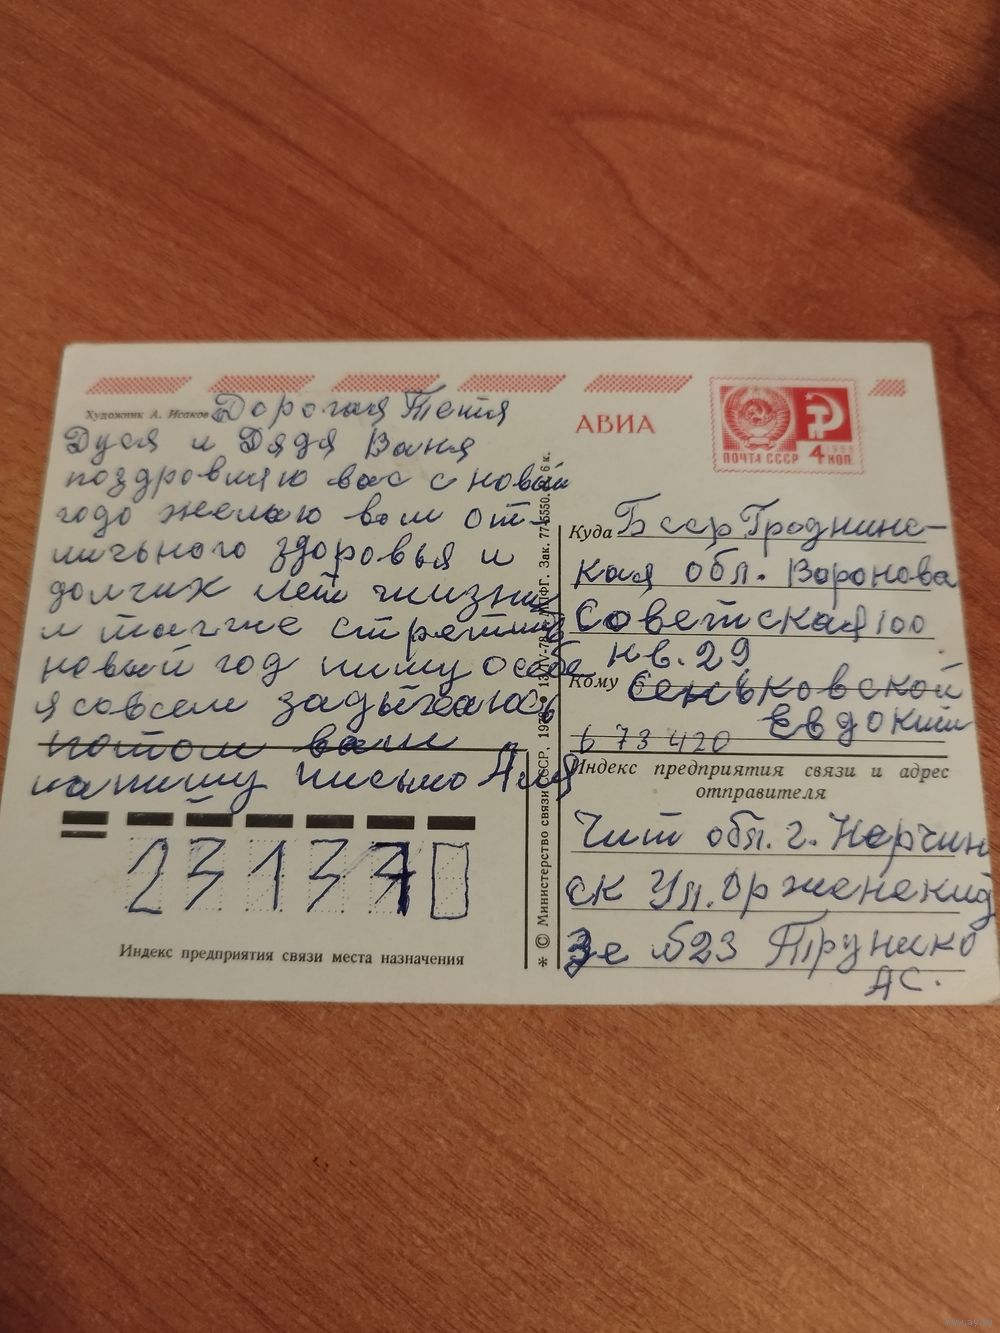 Художник А. Исаков
Дорогая Тетя
Дуся и Дядя Ваня
поздровляю вас с новый
годо желаю вам от-
личьного здоровья и
долгих лет жизни
и также стретить
новый год пишу особе
я совсем задыхаюсь
потом вам
напишу письмо Аля
231370
Индекс предприятия связи места назначения
* © Министерство связи СССР,
АВИА
ПОЧТА СССР
4 КОП.
Куда Бсср Гроднинс-
кая обл. Воронова
Советская 100
кв. 29
Кому Сеньковской
Евдокии
673420
Индекс предприятия связи и адрес
отправителя
Чит обл. г. Нерчин
ск Ул.
23
АС.